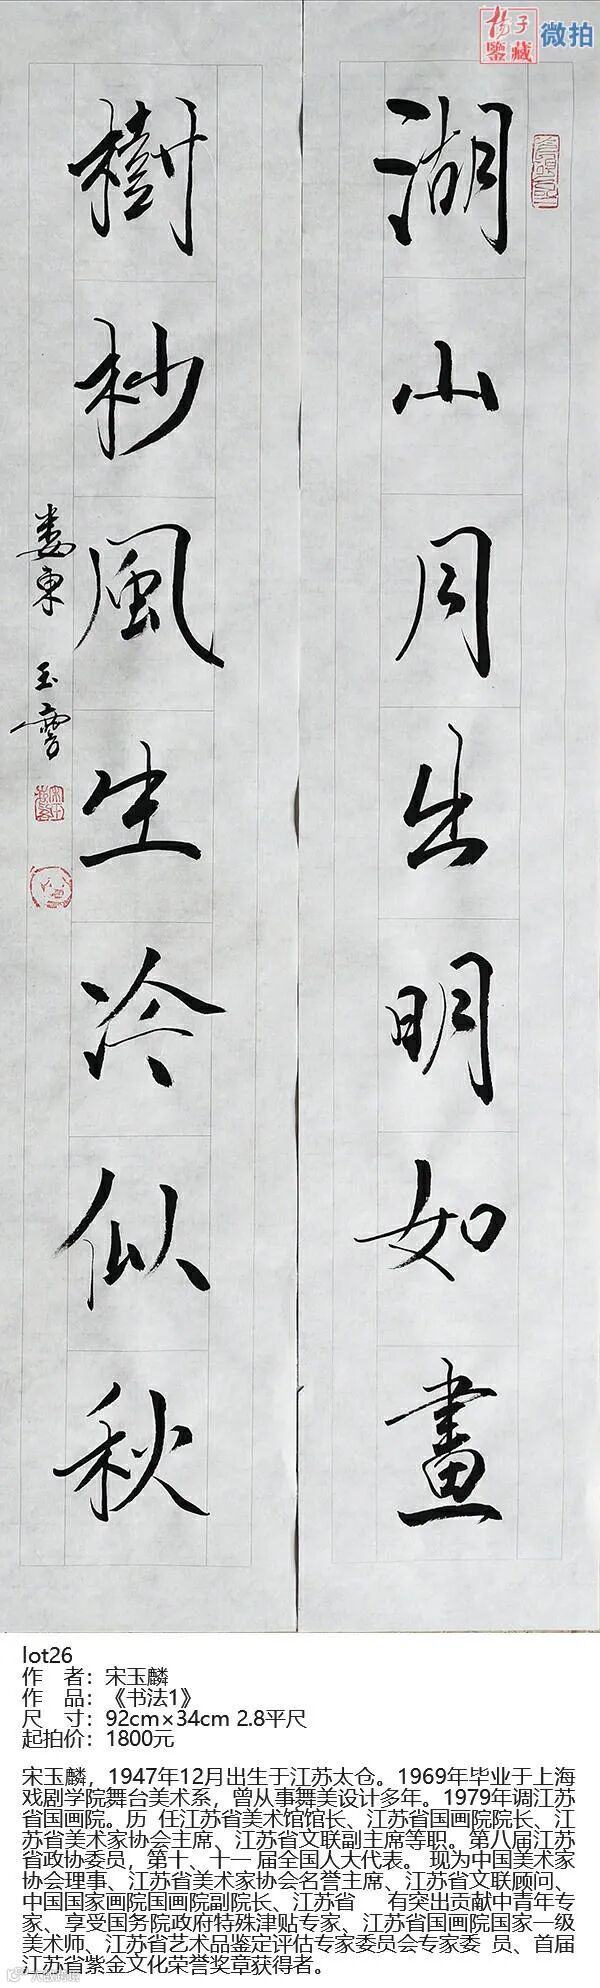 揚子
鑒藏
微拍
湖山月出明如畫
樹杪風生冷似秋
婁東
lot26
作 者：宋玉麟
作 品：《书法1》
尺 寸：92cm×34cm 2.8平尺
起拍价：1800元
宋玉麟，1947年12月出生于江苏太仓。1969年毕业于上海
戏剧学院舞台美术系，曾从事舞美设计多年。1979年调江苏
省国画院。历 任江苏省美术馆馆长、江苏省国画院院长、江
苏省美术家协会主席、江苏省文联副主席等职。第八届江苏
省政协委员，第十、十一 届全国人大代表。 现为中国美术家
协会理事、江苏省美术家协会名誉主席、江苏省文联顾问、
中国国家画院国画院副院长、江苏省 有突出贡献中青年专
家、享受国务院政府特殊津贴专家、江苏省国画院国家一级
美术师、江苏省艺术品鉴定评估专家委员会专家委 员、首届
江苏省紫金文化荣誉奖章获得者。